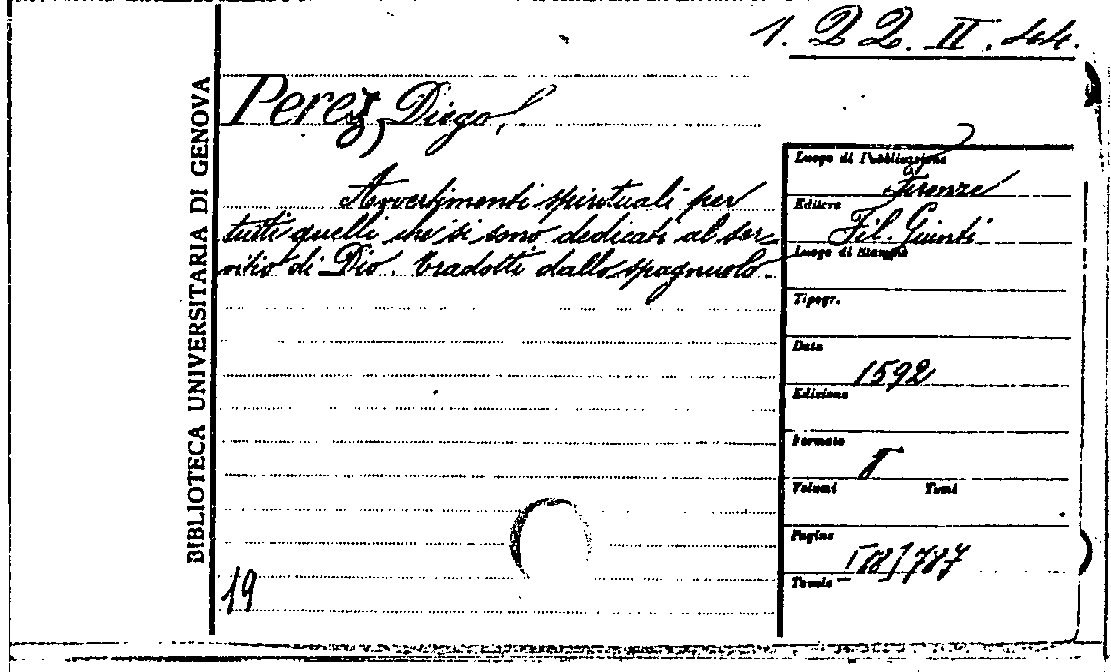 1. QQ. II. 44.
BIBLIOTECA UNIVERSITARIA DI GENOVA
Perez, Diego,
Avvertimenti spirituali per
tutti quelli che si sono dedicati al ser-
vitio di Dio. Tradotti dallo spagnuolo.
Luogo di Pubblicazione
Firenze
Editore
Fil. Giunti
Luogo di Stampa
Tipogr.
Data
1592
Edizione
Formato
Volumi Tomi
Pagine
787
Tavole
19